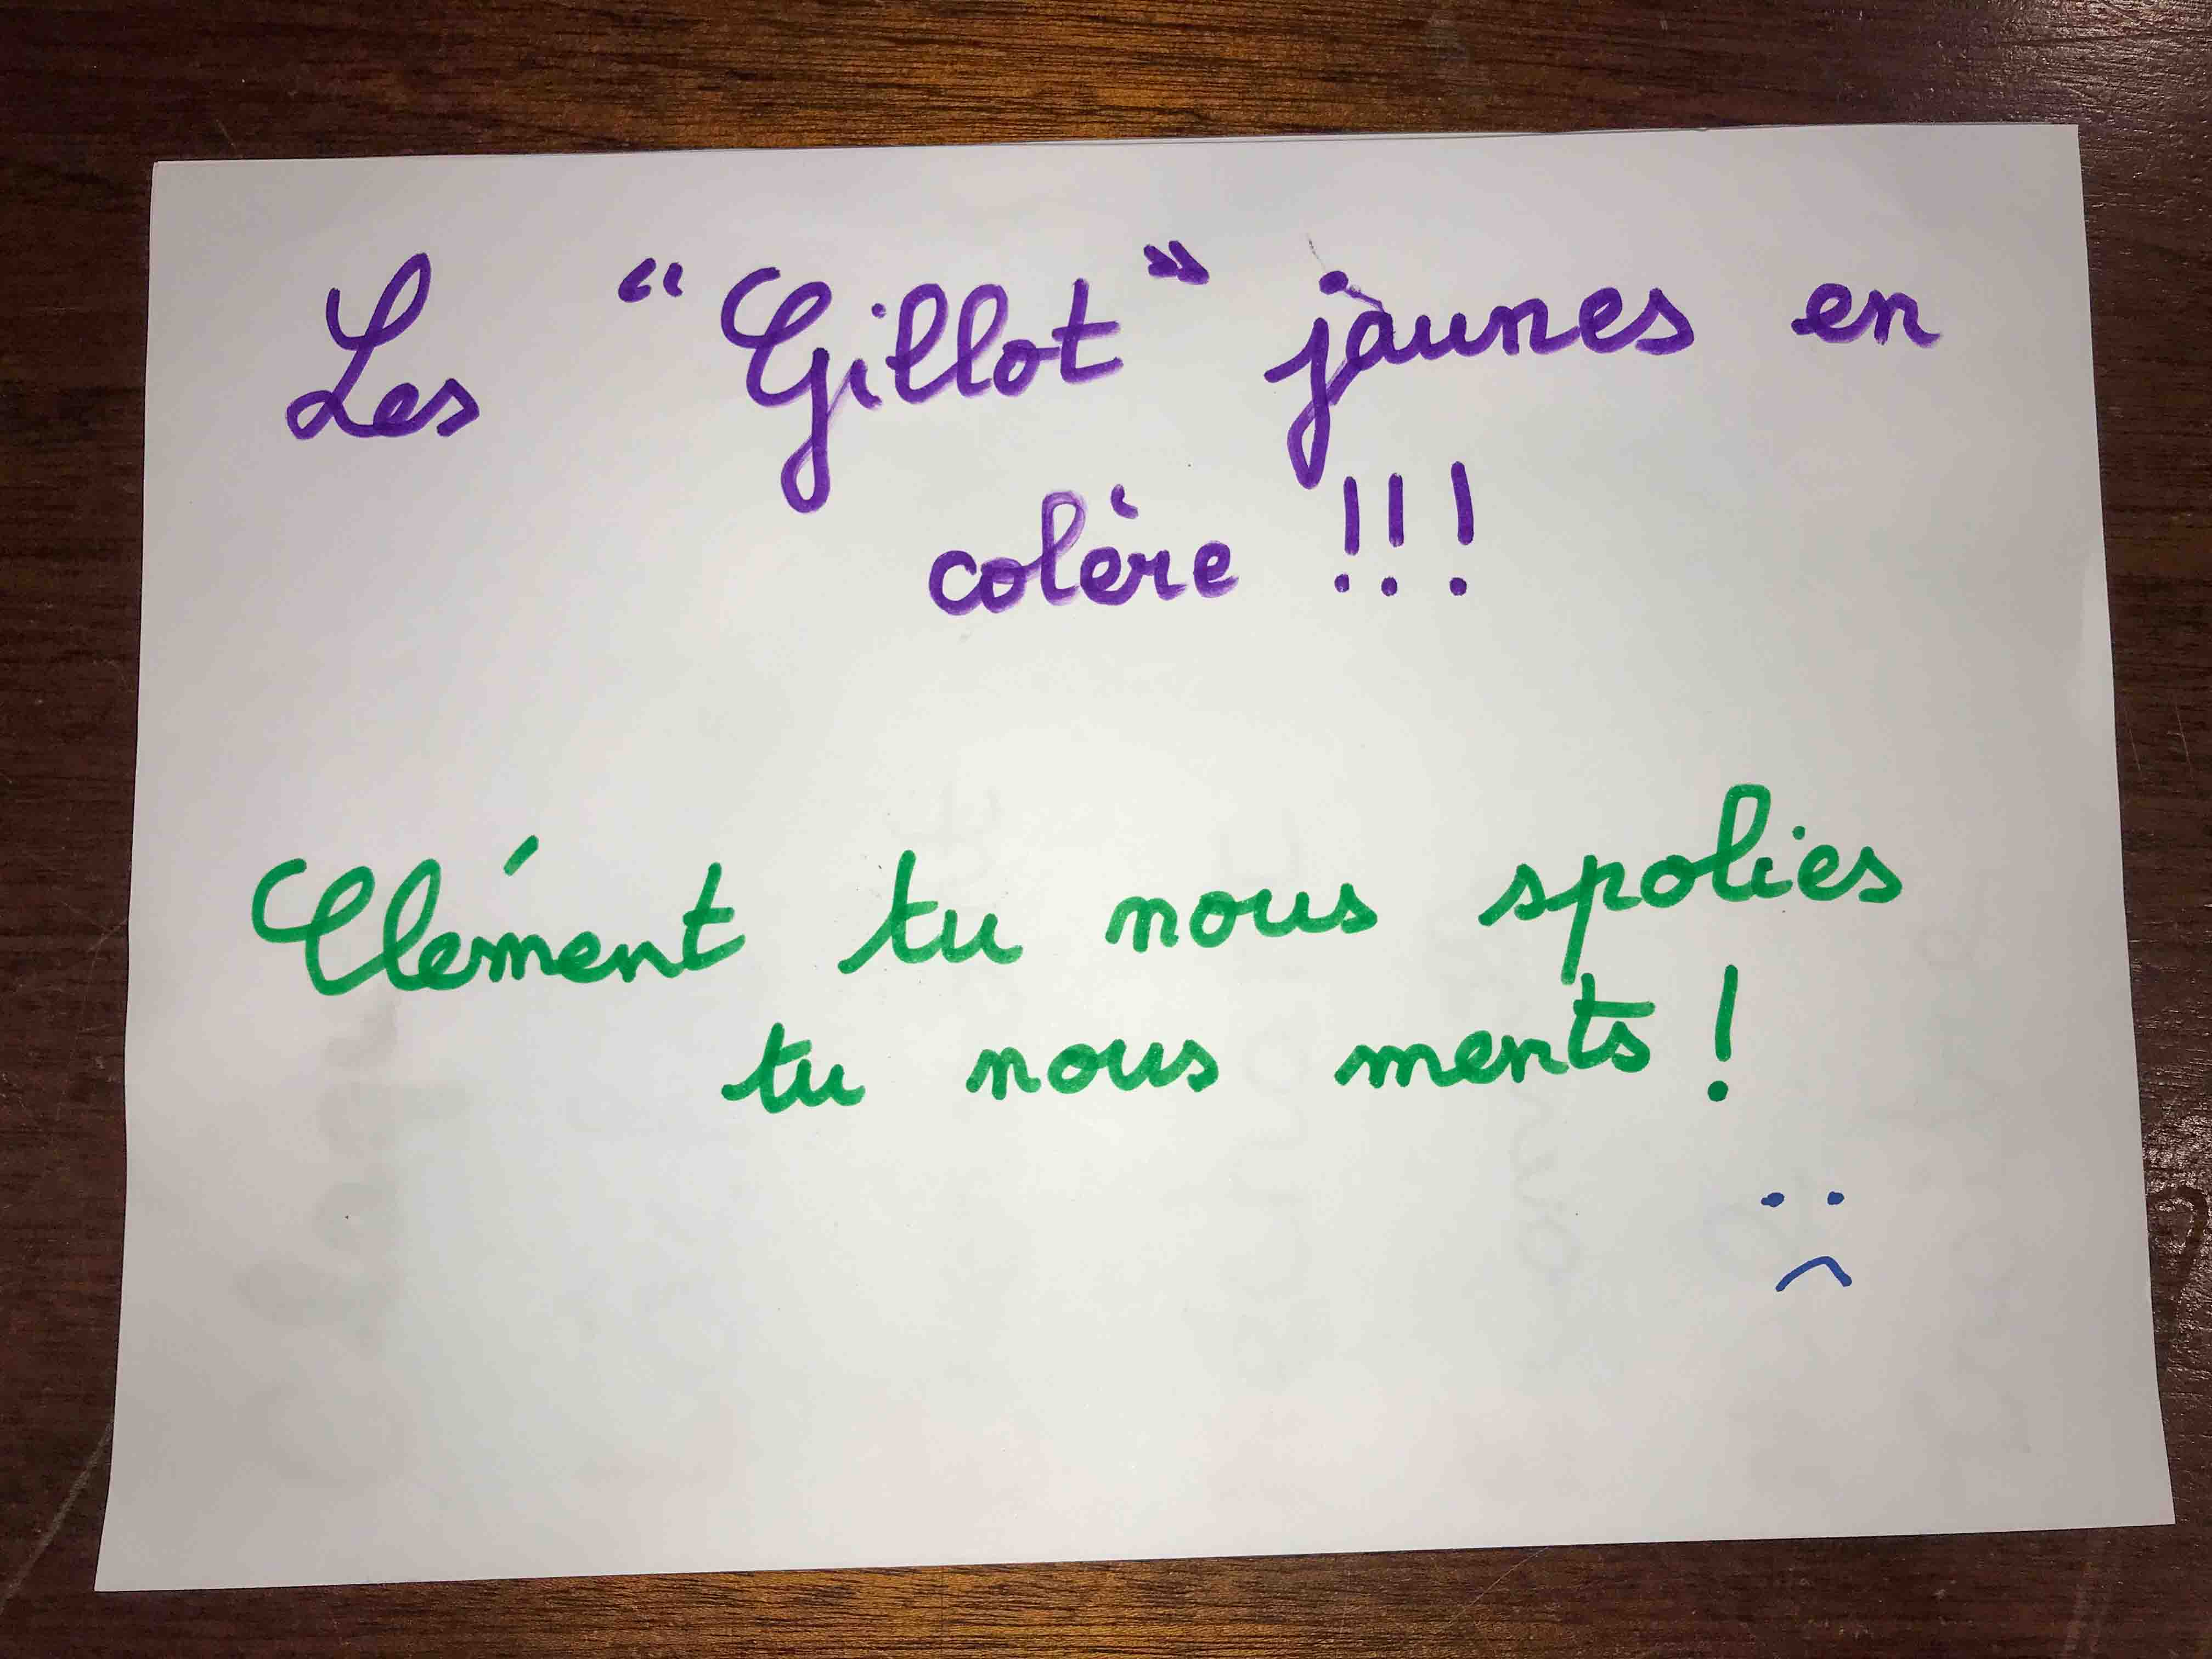 Les "Gillot" jaunes en
colère !!!
Clément tu nous spolies
tu nous ments !